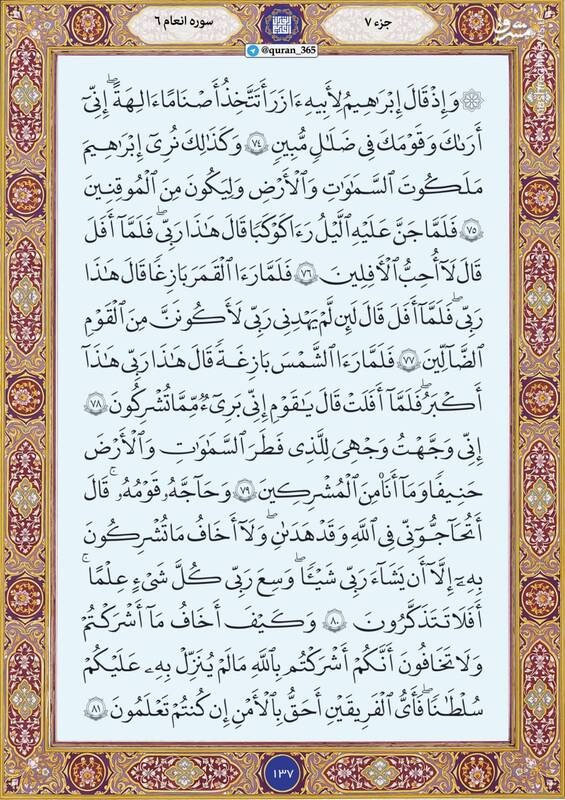 جزء ۷
سوره انعام ۶
@quran_365
مشرق
وَإِذْ قَالَ إِبْرَٰهِيمُ لِأَبِيهِ ءَازَرَ أَتَتَّخِذُ أَصْنَامًا ءَالِهَةً ۖ إِنِّىٓ
أَرَىٰكَ وَقَوْمَكَ فِى ضَلَٰلٍ مُّبِينٍ ۝٧٤ وَكَذَٰلِكَ نُرِىٓ إِبْرَٰهِيمَ
مَلَكُوتَ السَّمَٰوَٰتِ وَالْأَرْضِ وَلِيَكُونَ مِنَ الْمُوقِنِينَ
۝٧٥ فَلَمَّا جَنَّ عَلَيْهِ الَّيْلُ رَءَا كَوْكَبًا قَالَ هَٰذَا رَبِّى ۖ فَلَمَّآ أَفَلَ
قَالَ لَآ أُحِبُّ الْأَفِلِينَ ۝٧٦ فَلَمَّا رَءَا الْقَمَرَ بَازِغًا قَالَ هَٰذَا
رَبِّى ۖ فَلَمَّآ أَفَلَ قَالَ لَئِن لَّمْ يَهْدِنِى رَبِّى لَأَكُونَنَّ مِنَ الْقَوْمِ
الضَّآلِّينَ ۝٧٧ فَلَمَّا رَءَا الشَّمْسَ بَازِغَةً قَالَ هَٰذَا رَبِّى هَٰذَآ
أَكْبَرُ ۖ فَلَمَّآ أَفَلَتْ قَالَ يَٰقَوْمِ إِنِّى بَرِىٓءٌ مِّمَّا تُشْرِكُونَ ۝٧٨
إِنِّى وَجَّهْتُ وَجْهِىَ لِلَّذِى فَطَرَ السَّمَٰوَٰتِ وَالْأَرْضَ
حَنِيفًا وَمَآ أَنَا۠ مِنَ الْمُشْرِكِينَ ۝٧٩ وَحَآجَّهُۥ قَوْمُهُۥ ۚ قَالَ
أَتُحَٰٓجُّوٓنِّى فِى اللَّهِ وَقَدْ هَدَىٰنِ ۚ وَلَآ أَخَافُ مَا تُشْرِكُونَ
بِهِۦٓ إِلَّآ أَن يَشَآءَ رَبِّى شَيْـًٔا ۗ وَسِعَ رَبِّى كُلَّ شَىْءٍ عِلْمًا ۗ
أَفَلَا تَتَذَكَّرُونَ ۝٨٠ وَكَيْفَ أَخَافُ مَآ أَشْرَكْتُمْ
وَلَا تَخَافُونَ أَنَّكُمْ أَشْرَكْتُم بِاللَّهِ مَا لَمْ يُنَزِّلْ بِهِۦ عَلَيْكُمْ
سُلْطَٰنًا ۚ فَأَىُّ الْفَرِيقَيْنِ أَحَقُّ بِالْأَمْنِ ۖ إِن كُنتُمْ تَعْلَمُونَ ۝٨١
۱۳۷